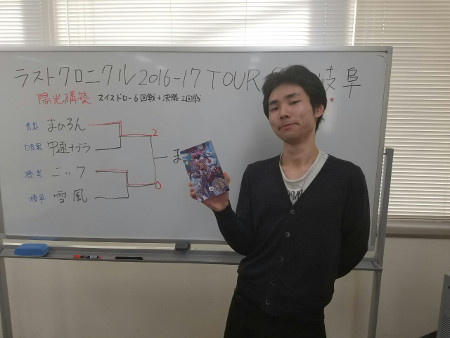 ラストクロニクル2016-17 TOUR 岐阜
陽光構築 スイスドロー6回戦+決勝2回戦
まひろん 2
甲速ナデラ
ニック 0
雪風
ま